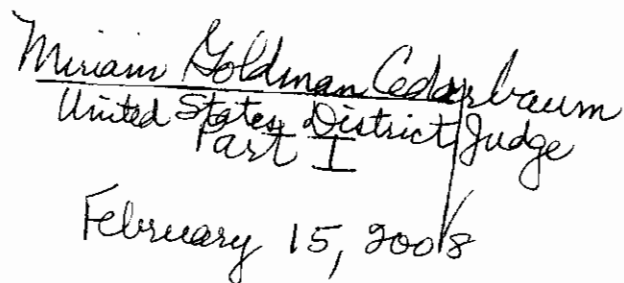 Miriam Goldman Cedarbaum
United States District Judge
Part I
February 15, 2008